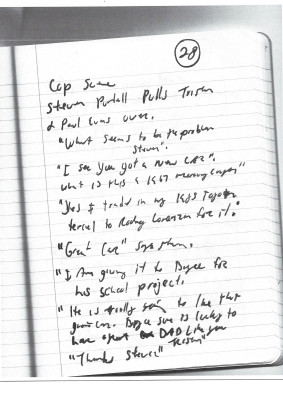 28
Cop Scene
Steven Pulls Tristen
& Paul over.
"What seems to be the problem
Steven".
"I see you got a New car".
what is this a 1967 mercury
"Yes I traded in my 1985 Toyota
to Rodney Lorenzen for it."
"Great Car" says
"I Am giving it to Boyce for
his school project.
"He is really going to like that
Boyce sure is lucky to
have a great DAD like you
"Thanks Steven"